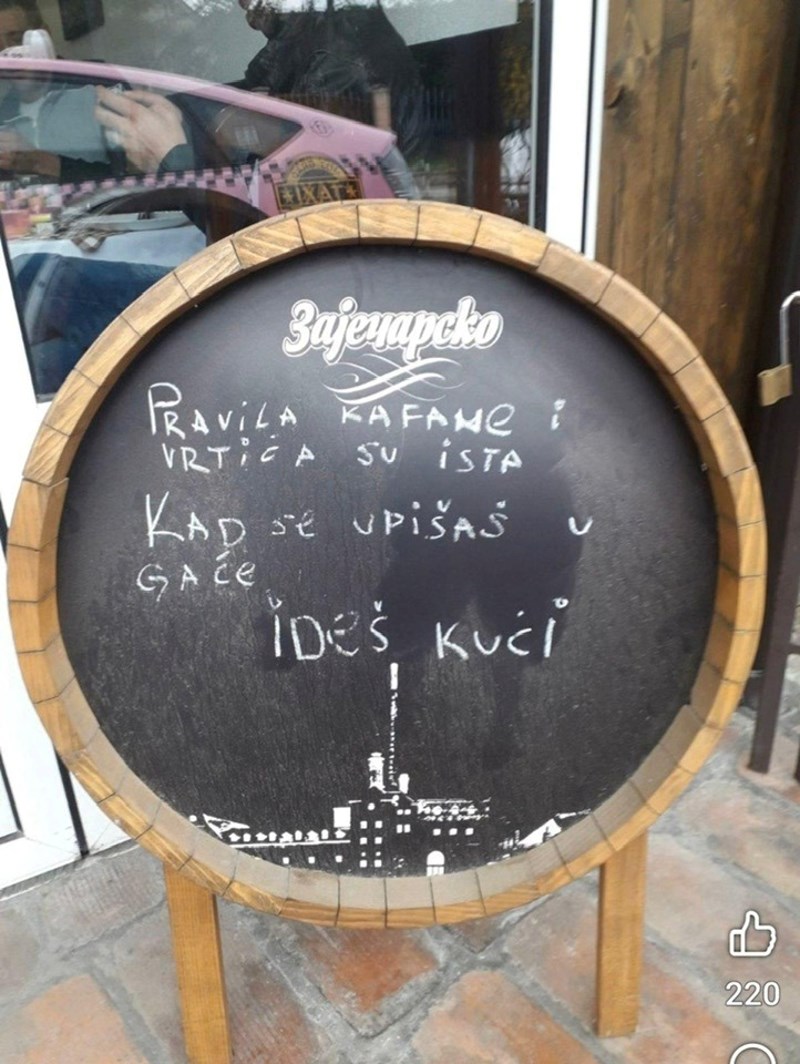 TAXI
Зајечарско
PRAVILA KAFANE i
VRTIĆA SU ISTA
KAD se UPIŠAŠ U
GAĆE
IDEŠ KUĆI
220